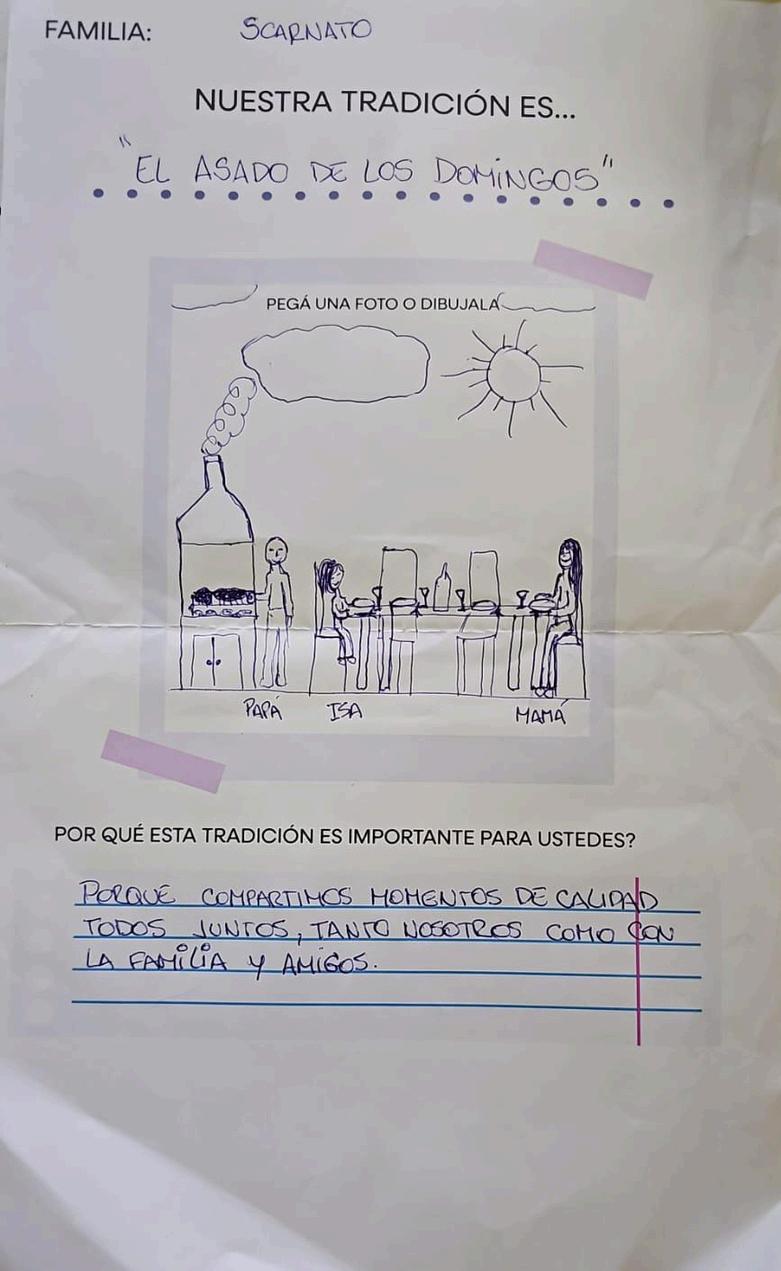 FAMILIA: SCARNATO
NUESTRA TRADICIÓN ES...
"EL ASADO DE LOS DOMINGOS"
PEGÁ UNA FOTO O DIBUJALA
PAPÁ ISA MAMÁ
POR QUÉ ESTA TRADICIÓN ES IMPORTANTE PARA USTEDES?
PORQUE COMPARTIMOS MOMENTOS DE CALIDAD
TODOS JUNTOS, TANTO NOSOTROS COMO CON
LA FAMILIA Y AMIGOS.